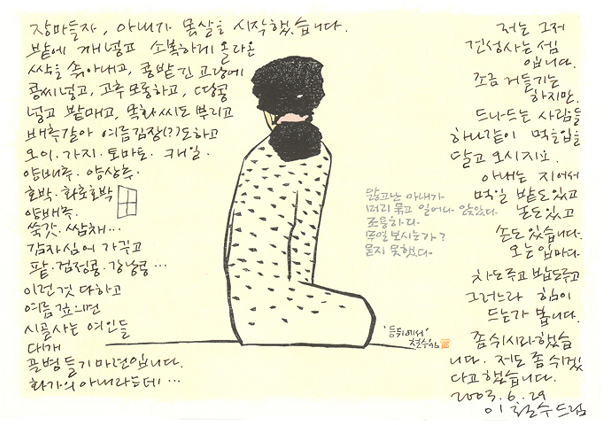 장마들자, 아내가 몸살을 시작했습니다.
밭에 깨 넣고 소복하게 올라온
싹을 솎아내고, 콩밭 긴 고랑에
콩씨 넣고, 고추 모종하고, 땅콩
넣고 밭매고, 목화씨도 뿌리고
배추갈아 여름김장(?)도하고
오이·가지·토마토· 케일·
양배추· 양상추·
호박·화초호박
양배추·
쑥갓·쌈채…
감자심어 가꾸고
팥·검정콩·강낭콩…
이런 것 다하고
여름 깊으면
시골사는 여인들
대개
골병들기 마련입니다.
화가의 아내라는데…
앓고난 아내가
머리 묶고 일어나 앉았다.
조용하다.
무얼 보시는가?
묻지 못했다.
"등뒤에서"
철수
저는 그저
건성사는 셈
입니다.
조금 거들기는
하지만.
드나드는 사람들
하나같이 먹을입을
달고 오시지요.
아내는 지어서
먹일 밭도있고
논도있고
손도 있습니다.
오는 입마다
차도주고 밥도주고
그러느라 힘이
드는가 봅니다.
좀 쉬시라 했습
니다. 저도 좀 쉬겠
다고 했습니다.
2003.6.29
이철수 드림